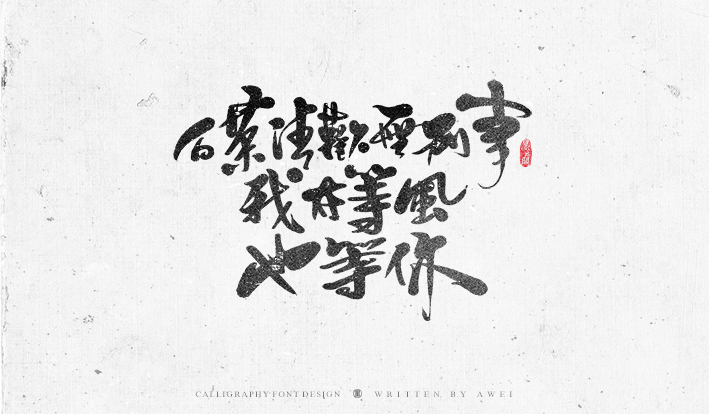 白茶清歡無別事
我在等風
也等你
CALLIGRAPHY FONT DESIGN WRITTEN BY AWEI